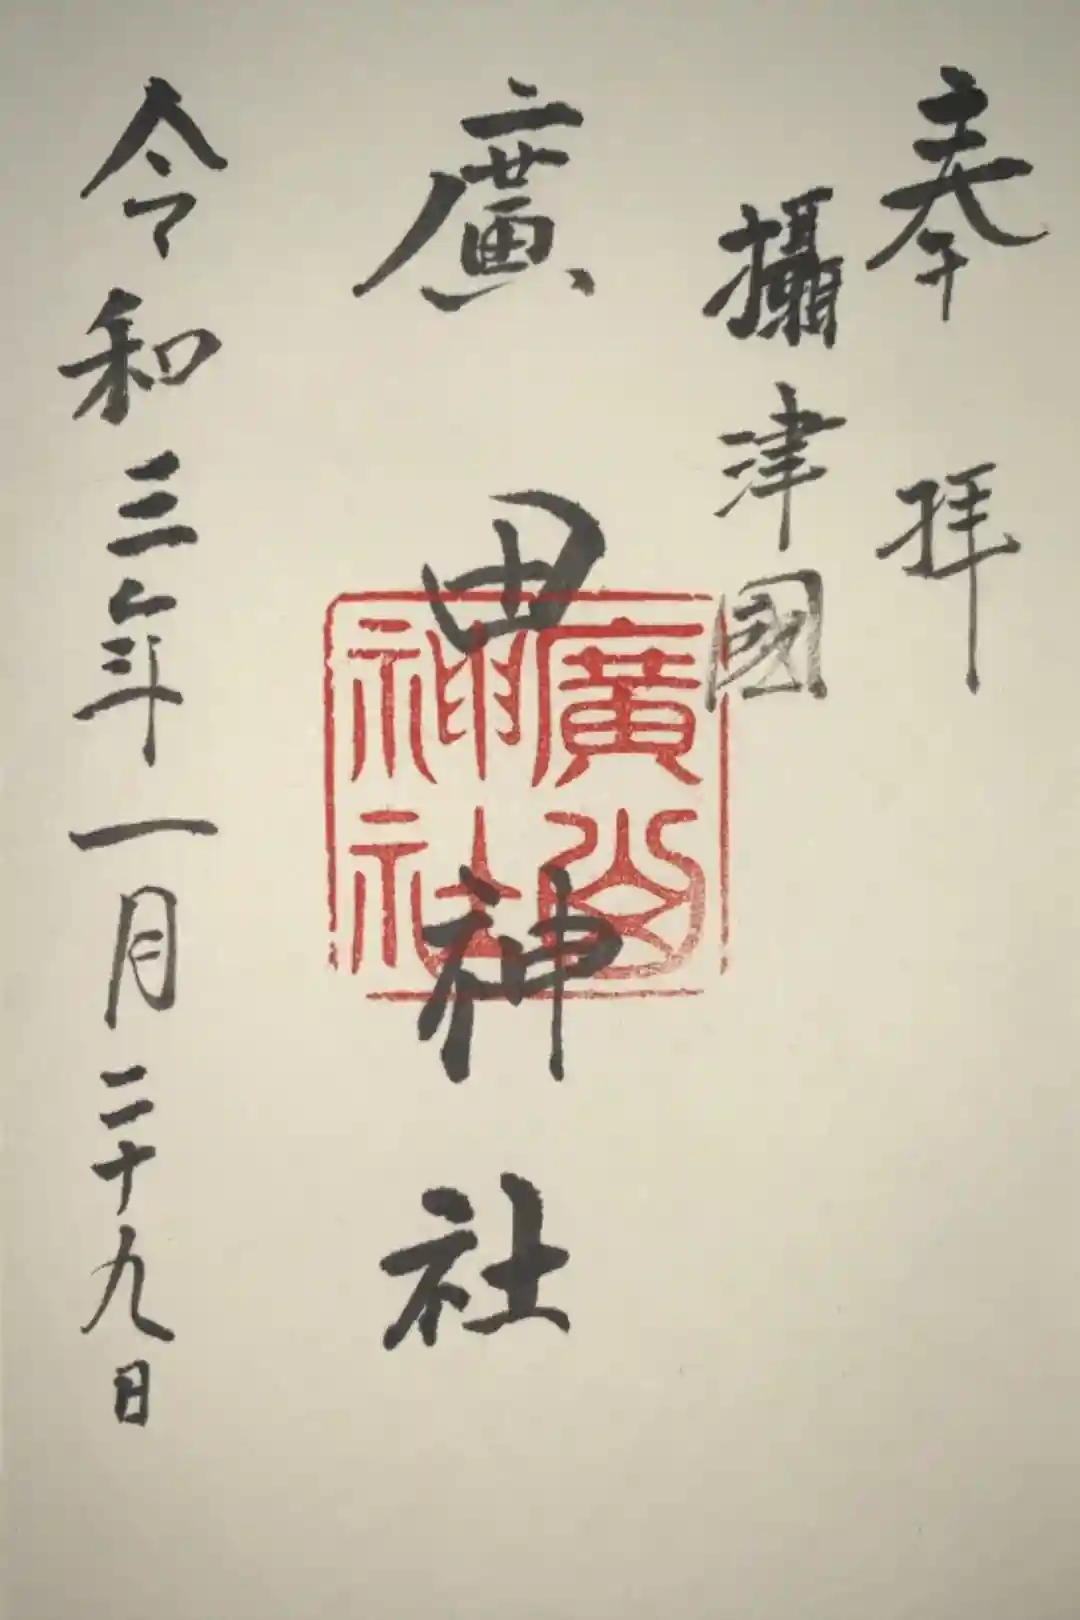 奉拝
攝津國
廣田神社
廣田神社
令和三年一月二十九日